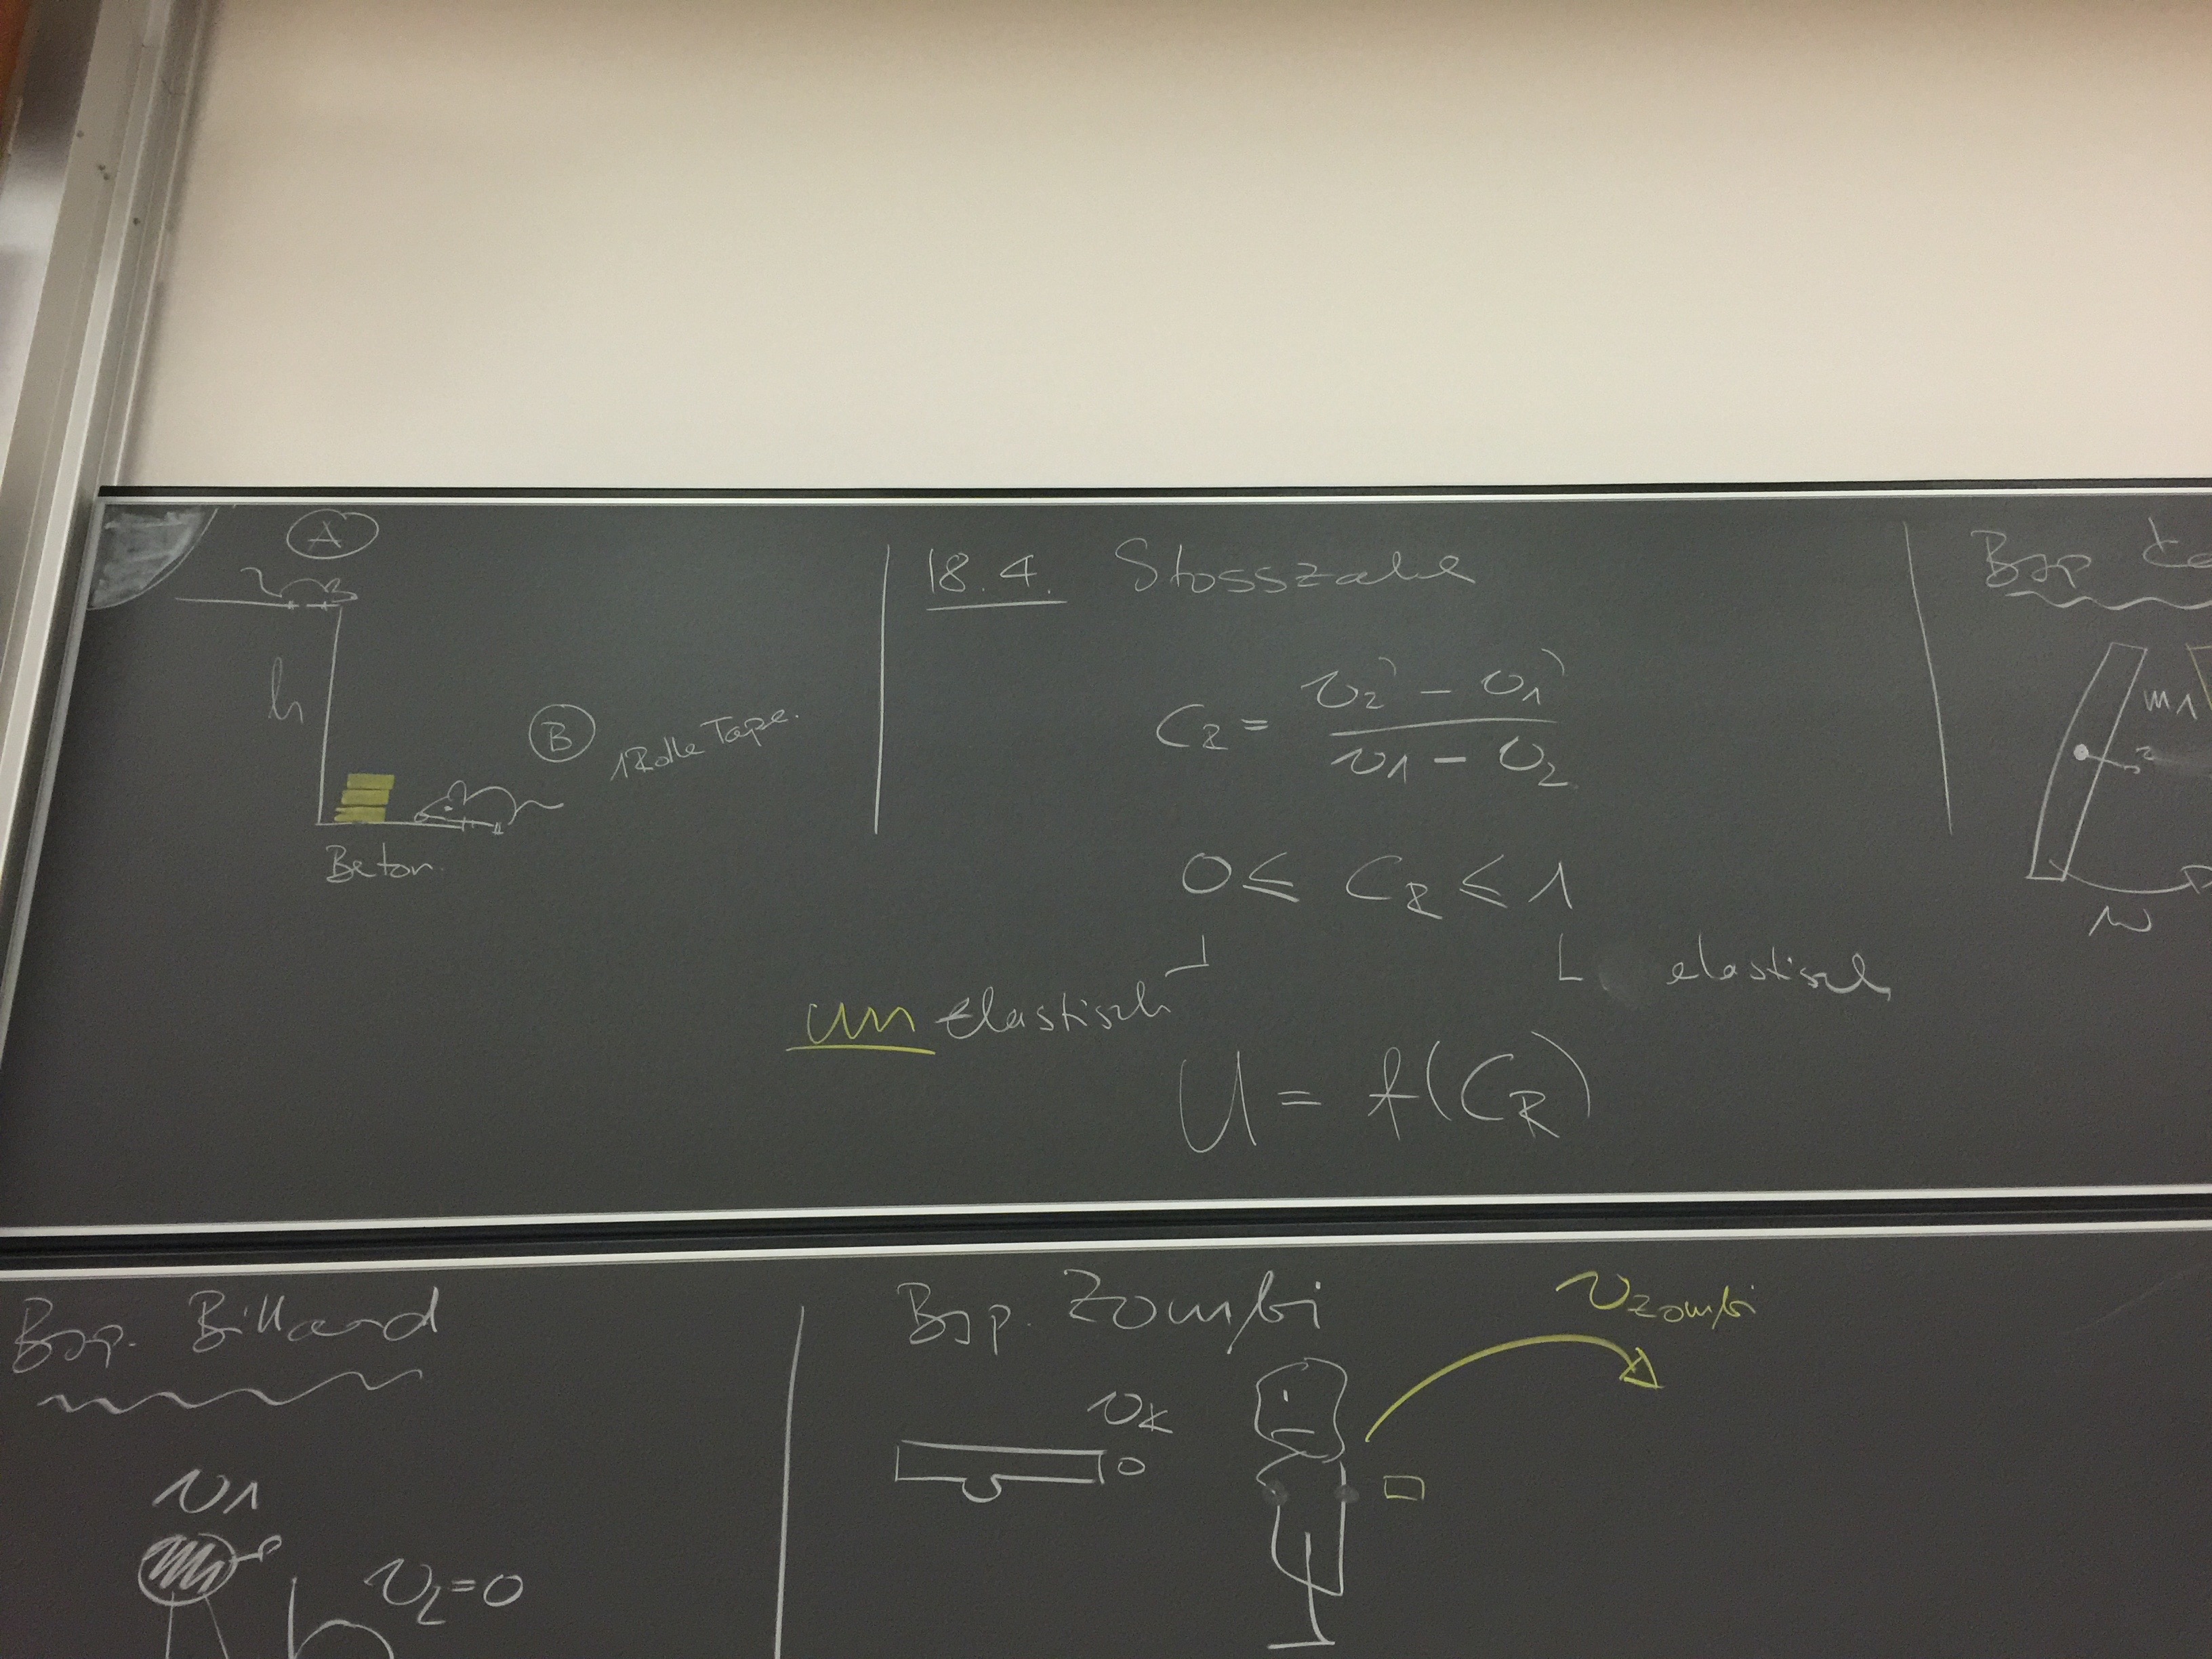 A
h
B
1 Rolle Tape.
Beton.
18.4. Stosszahl
C_R = (v_2' - v_1') / (v_1 - v_2)
0 ≤ C_R ≤ 1
elastisch
un elastisch
U = f(C_R)
Bsp.
m_1
Bsp. Billard
v_1
v_2 = 0
Bsp. Zombi
v_K
v_Zombi